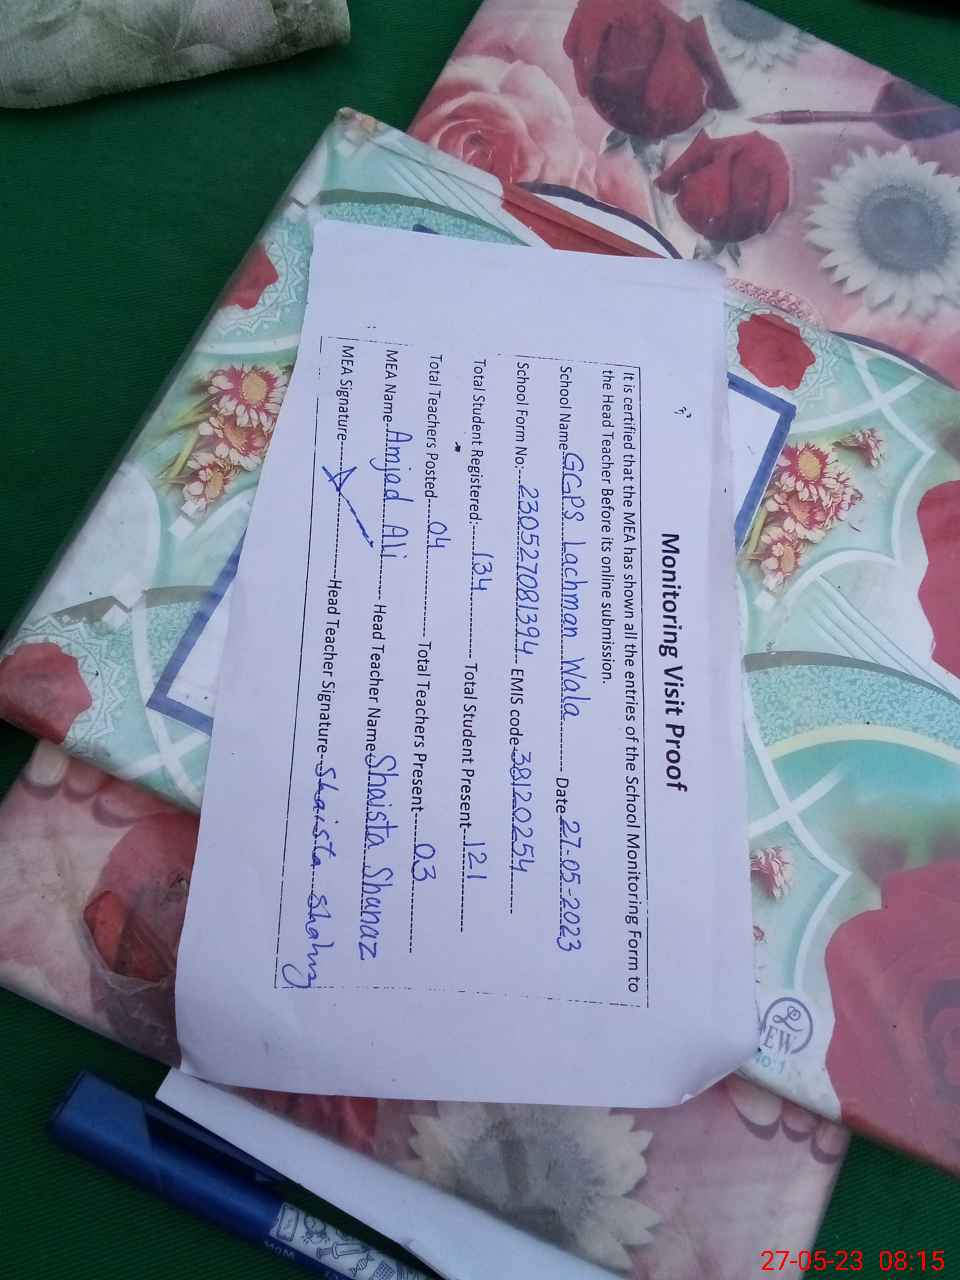 Monitoring Visit Proof
It is certified that the MEA has shown all the entries of the School Monitoring Form to
the Head Teacher Before its online submission.
School Name GGPS Lachman Wala Date 27-05-2023
School Form No: 230527081394 EMIS code 38120254
Total Student Registered: 134 Total Student Present 121
Total Teachers Posted 04 Total Teachers Present 03
MEA Name Amjad Ali Head Teacher Name Shaista Shanaz
MEA Signature Head Teacher Signature Shaista
EW
No.1
27-05-23 08:15